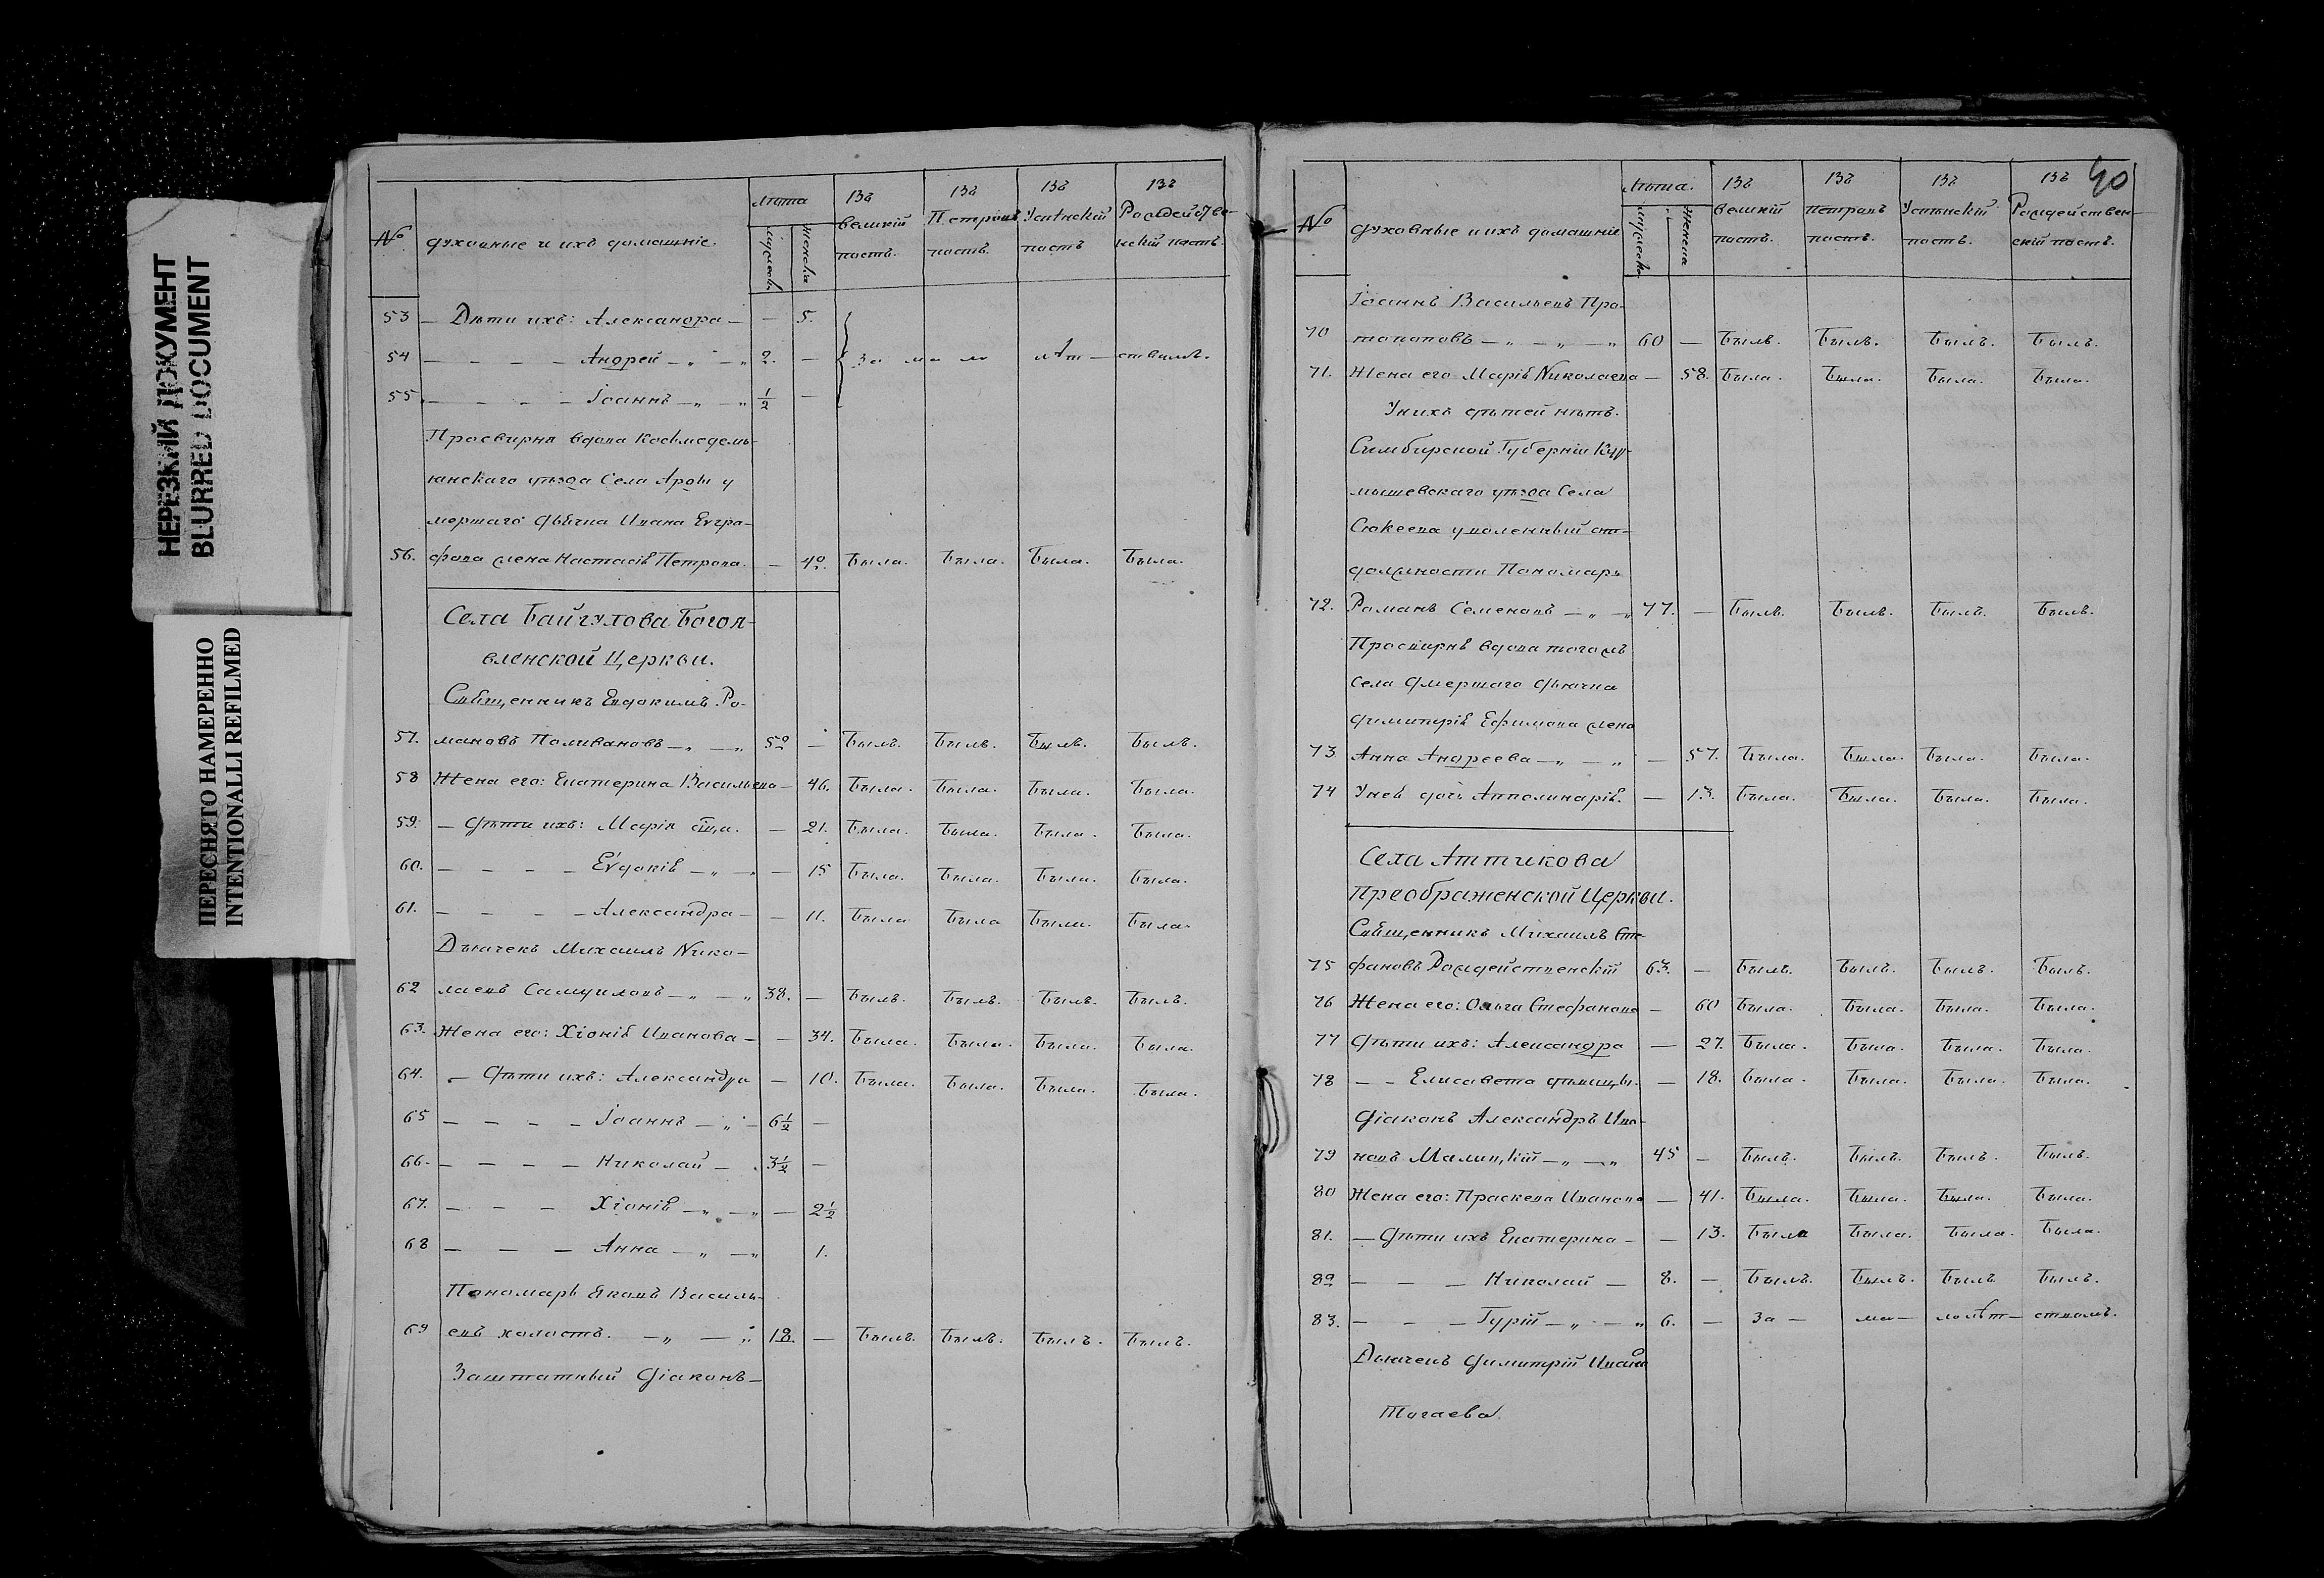 НЕРЕЗКИЙ ДОКУМЕНТ
BLURRED DOCUMENT
ПЕРЕСНЯТО НАМЕРЕННО
INTENTIONALLI REFILMED
№ духовные и ихъ домашніе. Лѣта мужеска женска Въ великій постъ. Въ Петровъ постъ. Въ Успѣнскій постъ Въ Рождественскій постъ.
53 — Дѣти ихъ: Александра — — 5.
54 — — — — Андрей — „ — „ 2. — За ма ло лѣт — ствомъ.
55. — — — — Іоаннъ — „ — „ 1/2 —
Просвирня вдова Козьмодемь-
янскаго уѣзда Села Арды у
мершаго дьячка Ивана Евгра-
56. фова жена Настасія Петрова. — 40. Была. Была. Была. Была.
Села Байгулова Богоя-
вленской Церкви.
Священникъ Евдокимъ Ро-
57. мановъ Поливановъ — „ — „ 50 — Былъ. Былъ. Былъ. Былъ.
58 Жена его: Екатерина Васильева — 46. Была. Была. Была. Была.
59. — Дѣти ихъ: Марія — 21. Была. Была. Была. Была.
60. — — — — Евдокія — „ — „ — 15 Была. Была. Была. Была.
61. — — — — Александра — — 11. Была Была Была. Была.
Дьячекъ Михаилъ Нико-
62 лаевъ Самуиловъ — „ — „ 38. — Былъ. Былъ. Былъ. Былъ.
63. Жена его: Хіонія Иванова — — 34. Была. Была. Была. Была.
64. — Дѣти ихъ: Александра — 10. Была. Была. Была. Была.
65 — — — — Іоаннъ — „ — 6 1/2 —
66. — — — — Николай — 3 1/2 —
67. — — — Хіонія — „ — „ — 2 1/2
68 — — — Анна — „ — „ 1.
Пономарь Яковъ Василь-
69 евъ холостъ. — „ — „ 18. — Былъ. Былъ. Былъ. Былъ.
Заштатный Діаконъ —
40
№ духовные и ихъ домашніе Лѣта. мужеска женска Въ великій постъ. Въ петровъ постъ. Въ Успѣнскій постъ. Въ Рождествен-скій постъ.
Іоаннъ Васильевъ Про-
70 топоповъ — „ — „ — „ 60 — Былъ. Былъ. Былъ. Былъ.
71. Жена его Марія Николаева — 58. Была. Была. Была. Была.
У нихъ дѣтей нѣтъ.
Симбирской Губерніи Кур-
мышевскаго уѣзда Села
Сюкеева уволенный от-
должности Пономарь
72. Романъ Семеновъ — „ — „ 77. — Былъ. Былъ. Былъ. Былъ.
Просвирня вдова тогожъ
села умершаго дьячка
Димитрія Ефимова жена
73 Анна Андреева — „ — „ — 57. Была. Была. Была. Была.
74 У ней дочь Апполинарія. — 13. Была. Была. Была. Была.
Села Аттикова
Преображенской Церкви.
Священникъ Михаилъ Сте-
75 фановъ Рождественскій 63. — Былъ. Былъ. Былъ. Былъ.
76 Жена его: Ольга Стефанова — 60 Была. Была. Была. Была.
77 Дѣти ихъ: Александра — 27. Была. Была. Была. Была.
78 — — Елисавета дѣвицы. — 18. Была. Была. Была. Была.
Діаконъ Александръ Ива-
79 новъ Малицкій — „ — „ 45 — Былъ. Былъ. Былъ. Былъ.
80 Жена его: Праскева Иванова — 41. Была. Была. Была. Была.
81. — Дѣти ихъ Екатерина — — 13. Была Была. Была. Была.
82 — — — Николай — 8. — Былъ. Былъ. Былъ. Былъ.
83. — — — Гурій — „ — „ 6. — За — ма — лолѣт — ствомъ.
Дьячекъ Димитрій Ивано
Тогаева.